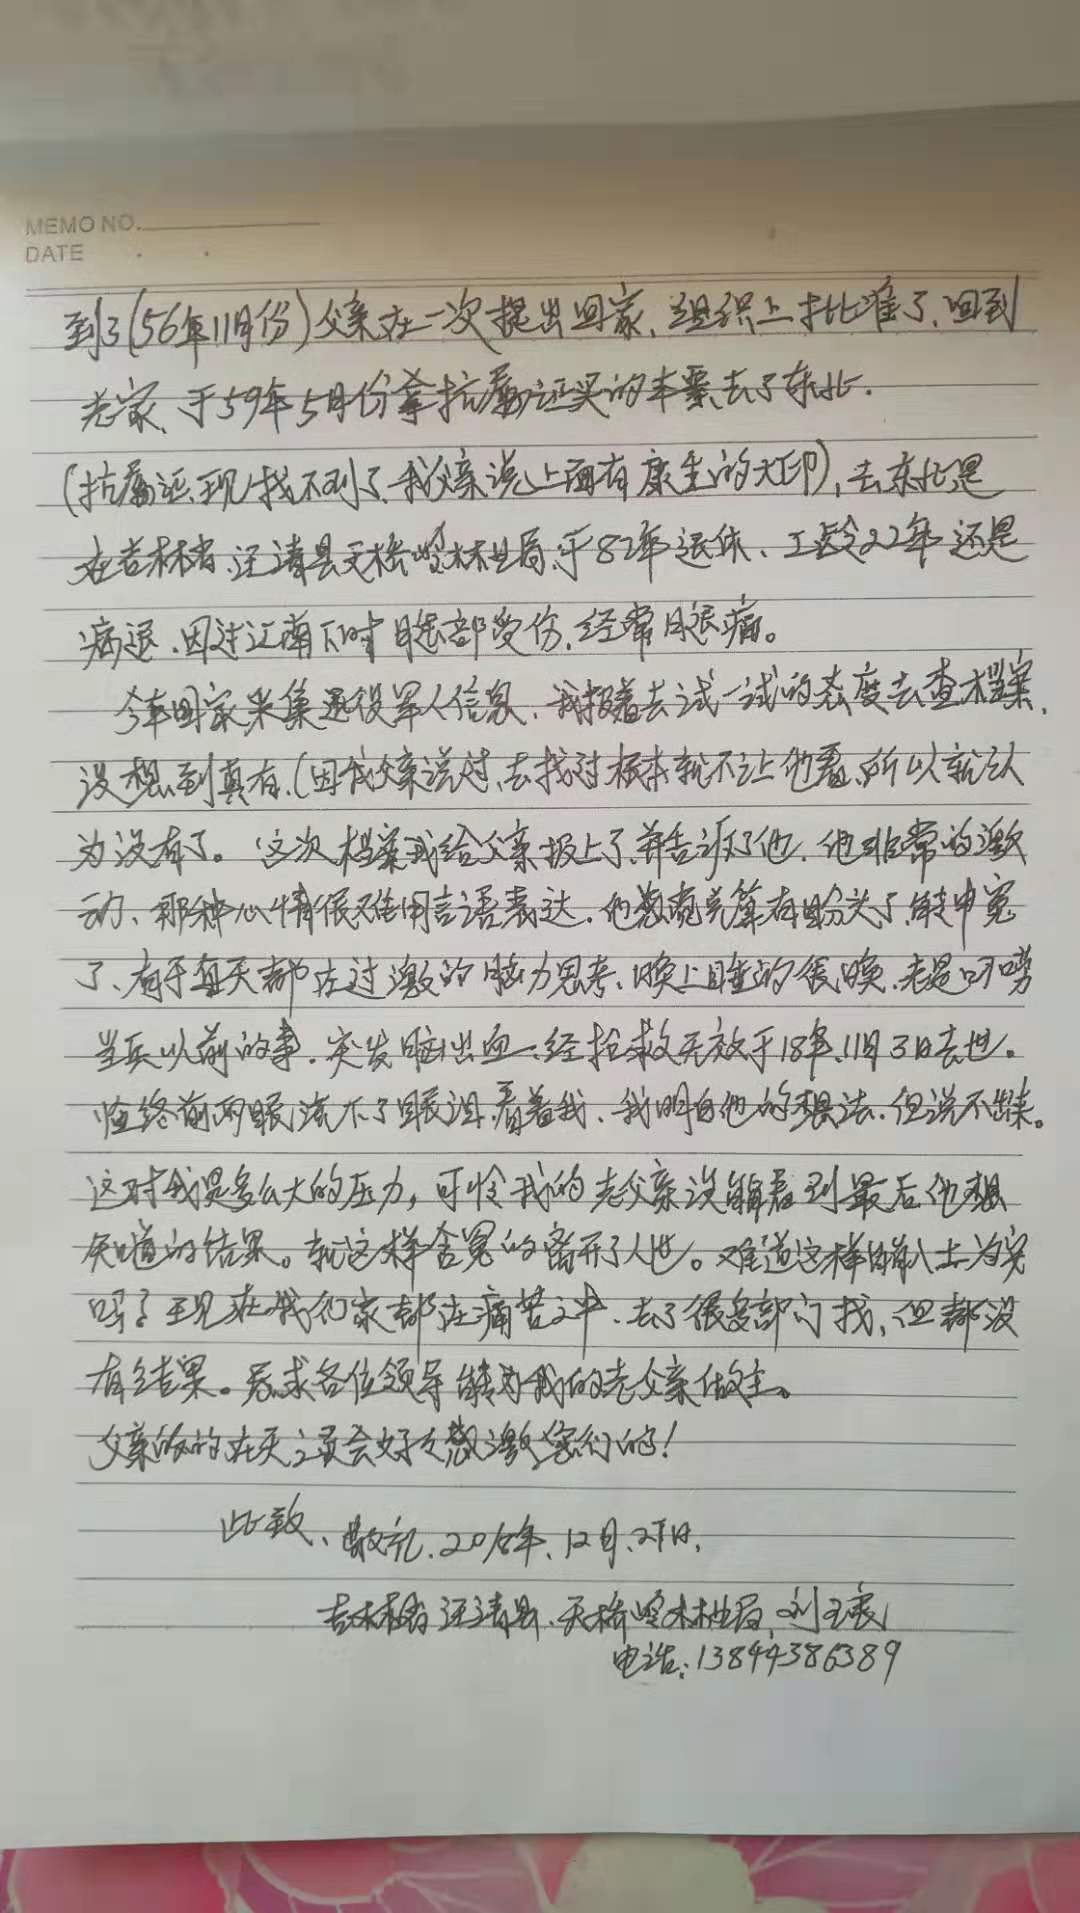 MEMO NO.
DATE
到了(56年11月份)父亲在一次提出回家、组织上批准了、回到
老家、于59年5月份拿抗属证买的车票去了东北.
(抗属证现找不到了、我父亲说上面有康生的大印), 去东北是
在吉林省、汪清县天桥岭林业局、于82年退休、工龄22年还是
病退、因过江南下时腿部受伤、经常腿痛。
今年国家采集退役军人信息、我报着去试一试的态度去查档案、
没想到真有、(因我父亲说过、去找过根本就不让他看、所以就认
为没有了。这次档案我给父亲报上了、并告诉了他、他非常的激
动、那种心情很难用言语表达、他总说总算有盼头了、能申冤
了、有于每天都在过激的脑力思考、晚上睡的很晚、老是叨唠
当兵以前的事、突发脑出血、经抢救无效于18年、11月3日去世。
临终前两眼流下了眼泪、看着我、我明白他的想法、但说不出来。
这对我是多么大的压力, 可怜我的老父亲没能看到最后他想
知道的结果。就这样含冤的离开了人世。难道这样的入土为安
吗? 现在我们家都在痛苦之中、去了很多部门找, 但都没
有结果。恳求各位领导能为我的老父亲做主。
父亲的在天之灵会好好感激您们的!
此致、敬礼、2018年、12月、21日,
吉林省汪清县、天桥岭林业局、刘玉
电话: 13844386389